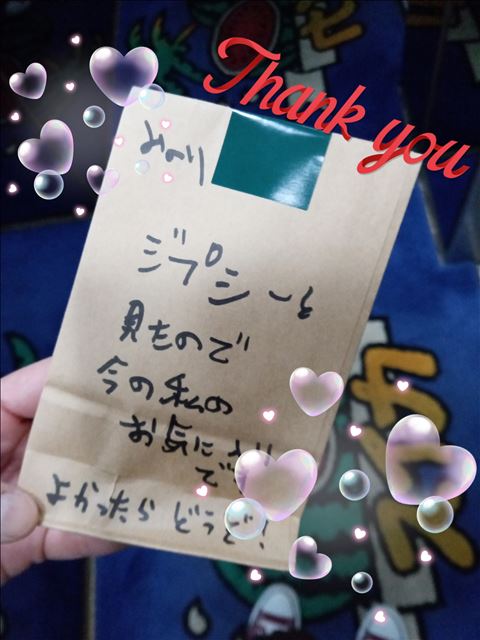 Thank you
みのり
ジプシー
もので
今の私の
お気に入り
で
よかったら どうぞ!